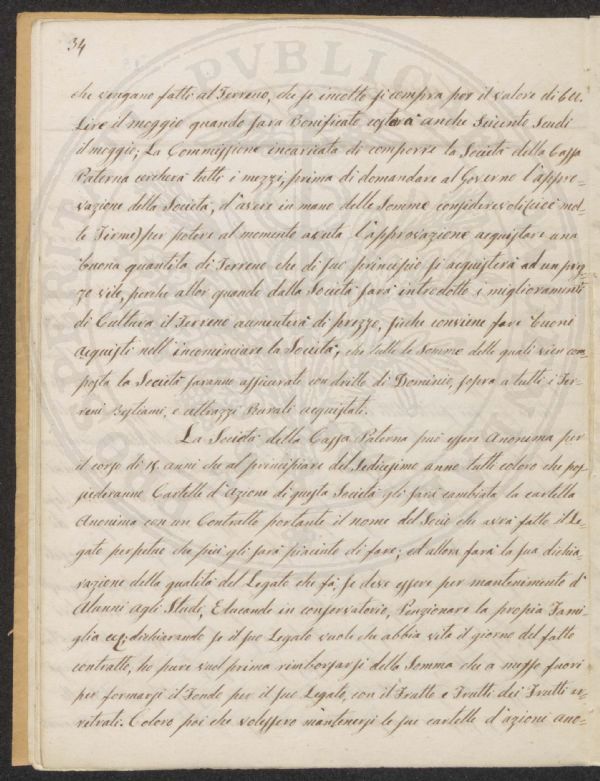 34
che vengano fatti al Terreno, che se incolto si compra per il valore di 60.
Lire il moggio quando sara Bonificato costerà anche Seicento Scudi
il moggio; La Commissione incaricata di comporre la Società della Cassa
Paterna cercherà tutti i mezzi, prima di domandare al Governo l'appro-
vazione della Società, d'avere in mano delle Somme considerevoli (cioè mol-
te Firme) per potere al momento avuta l'approvazione acquistare una
buona quantità di Terreno che di suo principio si acquisterà ad un prez-
zo vile, perche allor quando dalla Società sarà introdotto i miglioramenti
di Cultura il Terreno aumenterà di prezzo, sicche conviene fare buoni
acquisti nell'incominciare la Società, che tutte le Somme delle quali vien com-
posta la Società saranno assicurati con dritto di Dominio, sopra a tutti i Ter-
reni Bestiami, e attrazzi Rurali acquistati.
La Società della Cassa Paterna può essere Anonima per
il corso di 15 anni che al principiare del Sedicesimo anno tutti coloro che pos-
siederanno Cartelle d'Azione di questa Società gli sarà cambiata la cartella
Anonima con un Contratto portante il nome del Socio che avrà fatto il Le-
gato perpetuo che più gli sarà piaciuto di fare; ed allora farà la sua dichia-
razione della qualità del Legato che fà; se deve essere per mantenimento d'
Alunni agli Studi, Educande in conservatorio, Penzionare la propia Fami-
glia ecc; dichiarando se il suo Legato vuole che abbia vita il giorno del fatto
contratto, ho pure vuol prima rimborsarsi della Somma che a messo fuori
per formarsi il Fondo per il suo Legato, con il Frutto e Frutti dei Frutti ar-
retrati. Coloro poi che volessero mantenersi le sue cartelle d'azioni ano-